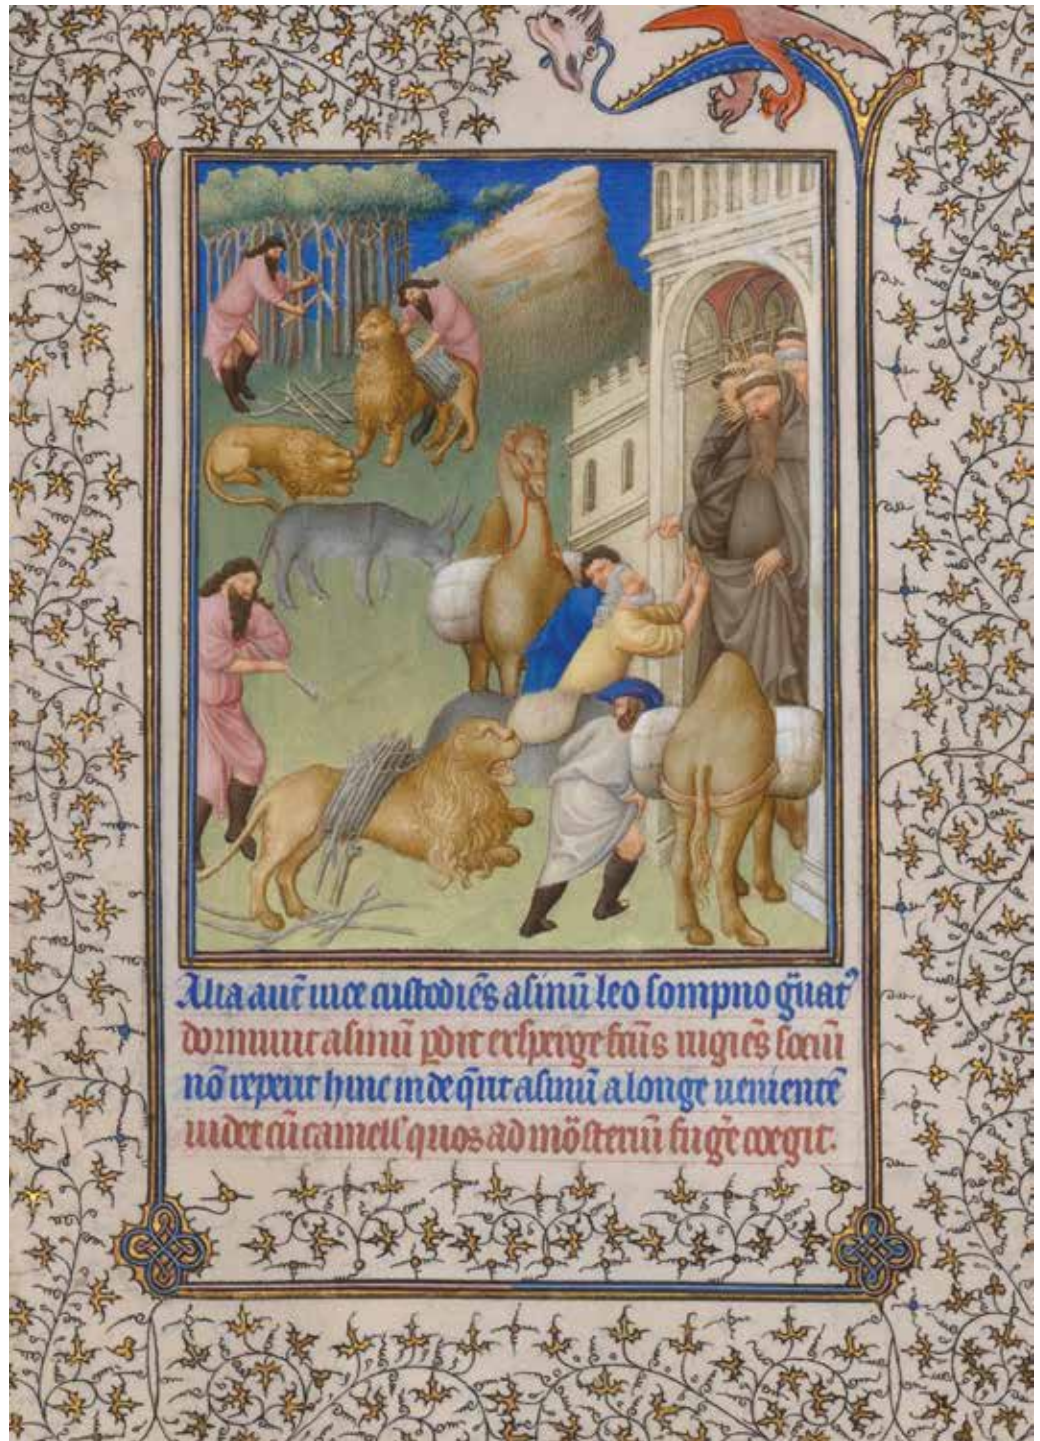 Alia aut̄ uice custodiēs asinū leo sompno g̃uatꝰ
dormiuit asinū ꝑdit exsperge fc̄us rugiēs sociū
nō reperit hinc inde q̄rit asinū a longe uenientē
uidet cū camell' quos ad mōsteriū fuge᷒ coegit.